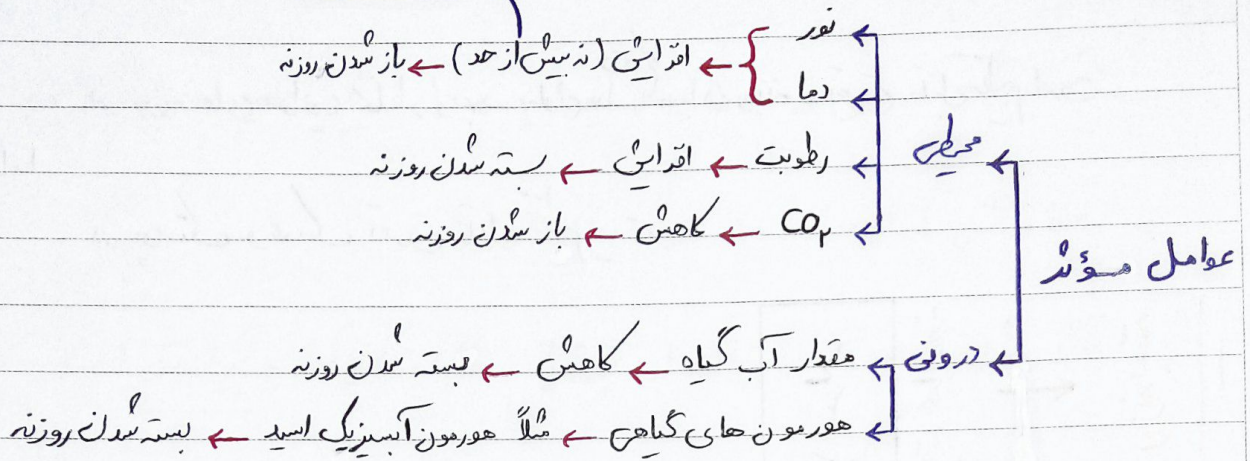 نور
دما
افزایش (نه بیش از حد) ← باز شدن روزنه
محیطی
رطوبت ← افزایش ← بسته شدن روزنه
CO₂ ← کاهش ← باز شدن روزنه
عوامل مؤثر
درونی ← مقدار آب گیاه ← کاهش ← بسته شدن روزنه
هورمون های گیاهی ← مثلاً هورمون آبسیزیک اسید ← بسته شدن روزنه